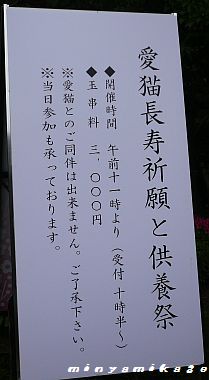 愛猫長寿祈願と供養祭
◆開催時間 午前十一時より（受付 十時半～）
◆玉串料 三、〇〇〇円
※愛猫とのご同伴は出来ません。ご了承下さい。
※当日参加も承っております。
minyamikaze